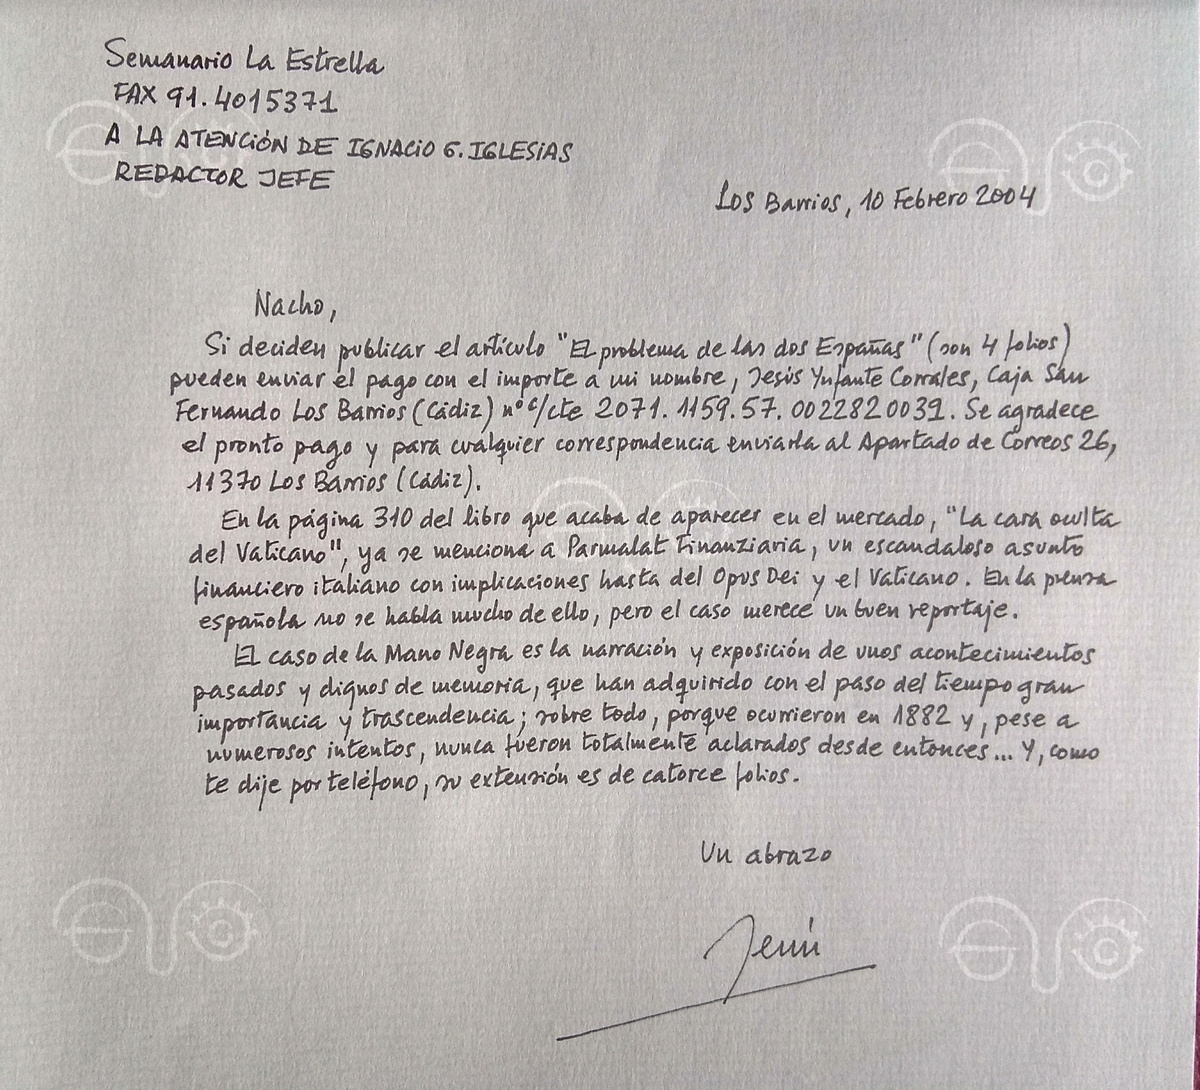 Semanario La Estrella
FAX 91.4015371
A LA ATENCIÓN DE IGNACIO G. IGLESIAS
REDACTOR JEFE
Los Barrios, 10 Febrero 2004
Nacho,
Si deciden publicar el artículo "El problema de las dos Españas" (son 4 folios)
pueden enviar el pago con el importe a mi nombre, Jesús Ynfante Corrales, Caja San
Fernando Los Barrios (Cádiz) nº c/cte 2071.1159.57.0022820039. Se agradece
el pronto pago y para cualquier correspondencia enviarla al Apartado de Correos 26,
11370 Los Barrios (Cádiz).
En la página 310 del libro que acaba de aparecer en el mercado, "La cara oculta
del Vaticano", ya se menciona a Parmalat Finanziaria, un escandaloso asunto
financiero italiano con implicaciones hasta del Opus Dei y el Vaticano. En la prensa
española no se habla mucho de ello, pero el caso merece un buen reportaje.
El caso de la Mano Negra es la narración y exposición de unos acontecimientos
pasados y dignos de memoria, que han adquirido con el paso del tiempo gran
importancia y trascendencia; sobre todo, porque ocurrieron en 1882 y, pese a
numerosos intentos, nunca fueron totalmente aclarados desde entonces... Y, como
te dije por teléfono, su extensión es de catorce folios.
Un abrazo
Jesús